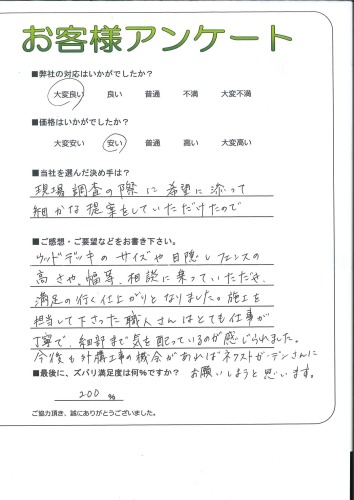 お客様アンケート
■弊社の対応はいかがでしたか？
大変良い 良い 普通 不満 大変不満
■価格はいかがでしたか？
大変安い 安い 普通 高い 大変高い
■当社を選んだ決め手は？
現場調査の際に希望に添って
細かな提案をしていただけたので
■ご感想・ご要望などをお書き下さい。
ウッドデッキのサイズや目隠しフェンスの
高さや、幅等、相談に乗っていただき、
満足の行く仕上がりとなりました。施工を
担当して下さった職人さんはとても仕事が
丁寧で、細部まで気を配っているのが感じられました。
今後も外構工事の機会があればネクストガーデンさんに
お願いしようと思います。
■最後に、ズバリ満足度は何%ですか？
200 %
ご協力頂き、誠にありがとうございました。